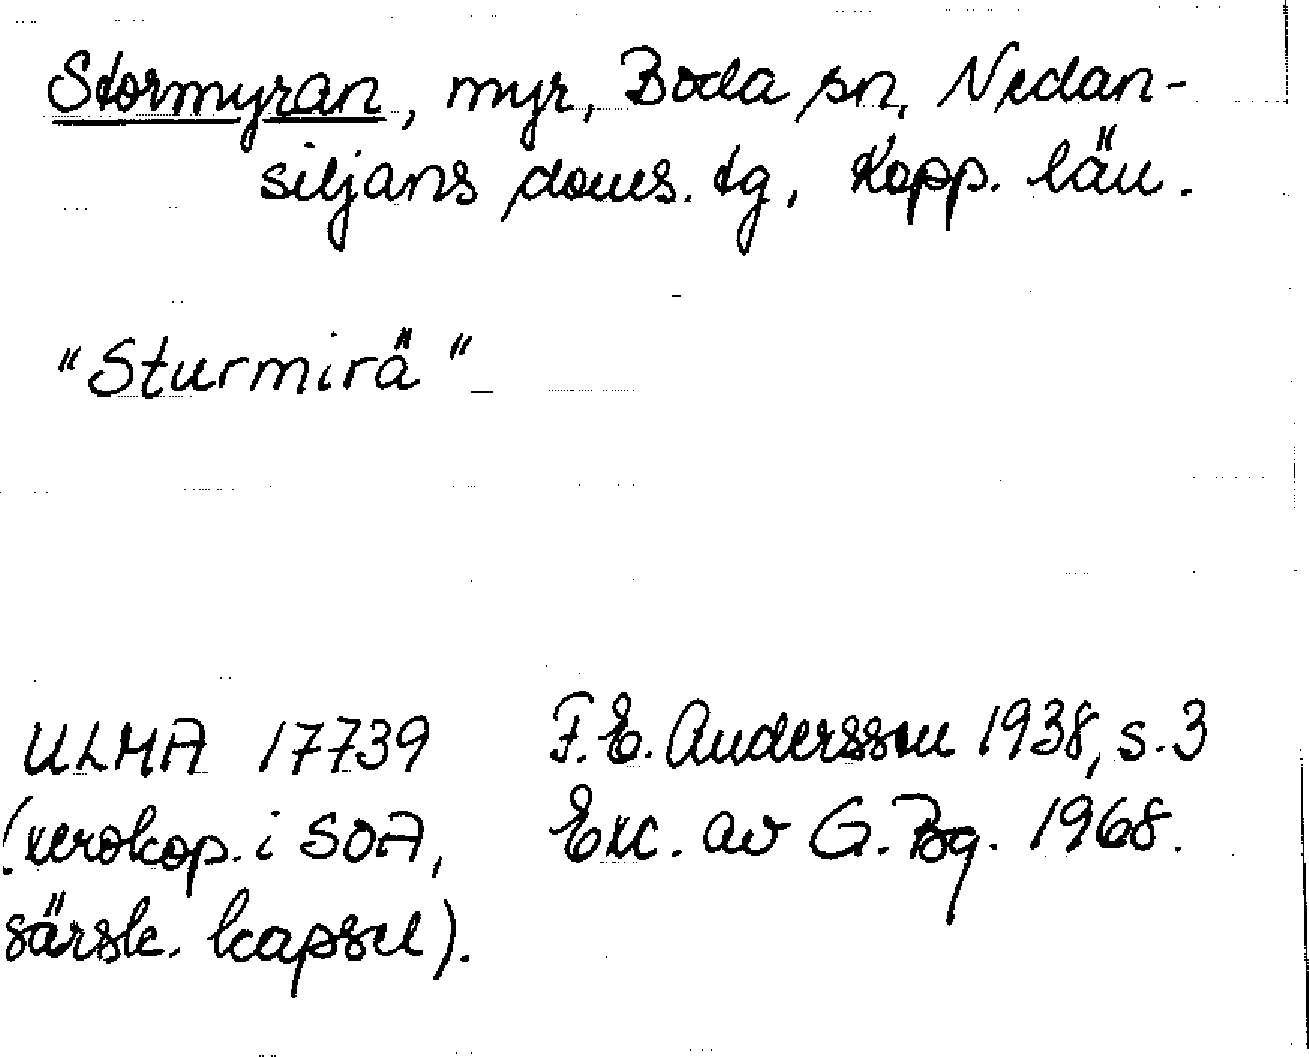 Stormyran, myr, Boda sn, Nedan-
siljans doms. tg, Kopp. län.
"Sturmirä"
ULMA 17739
(xerokop. i SOA,
särsk. kapsel).
F. E. Andersson 1938, s. 3
Exc. av G. Bg. 1968.